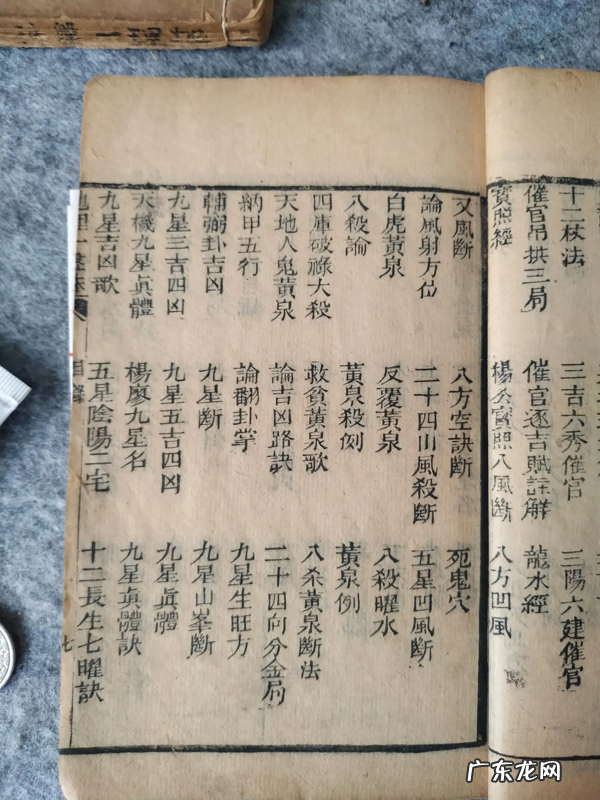 十二杖法　三吉六秀催官　三陽六建催官
催官吊拱三局　催官逐吉賦註解　龍水經
寶照經　楊公寶照八風斷　八方凹風
又風斷　八方空訣斷　死鬼穴
論風射方位　二十四山風殺斷　五星凹風斷
白虎黃泉　反覆黃泉　八殺曜水
八殺論　黃泉殺例　黃泉例
四庫破祿大殺　救貧黃泉歌　八杀黃泉斷法
天地人鬼黃泉　論吉凶路訣　二十四向分金局
納甲五行　論翻卦掌　九星生旺方
輔弼卦吉凶　九星斷　九星山峯斷
九星三吉四凶　九星五吉四凶　九星眞體
天機九星眞體　楊廖九星名　九星眞體訣
九星吉凶歌　五星陰陽二宅　十二長生七曜訣
地理一　目錄　七
广东龙网